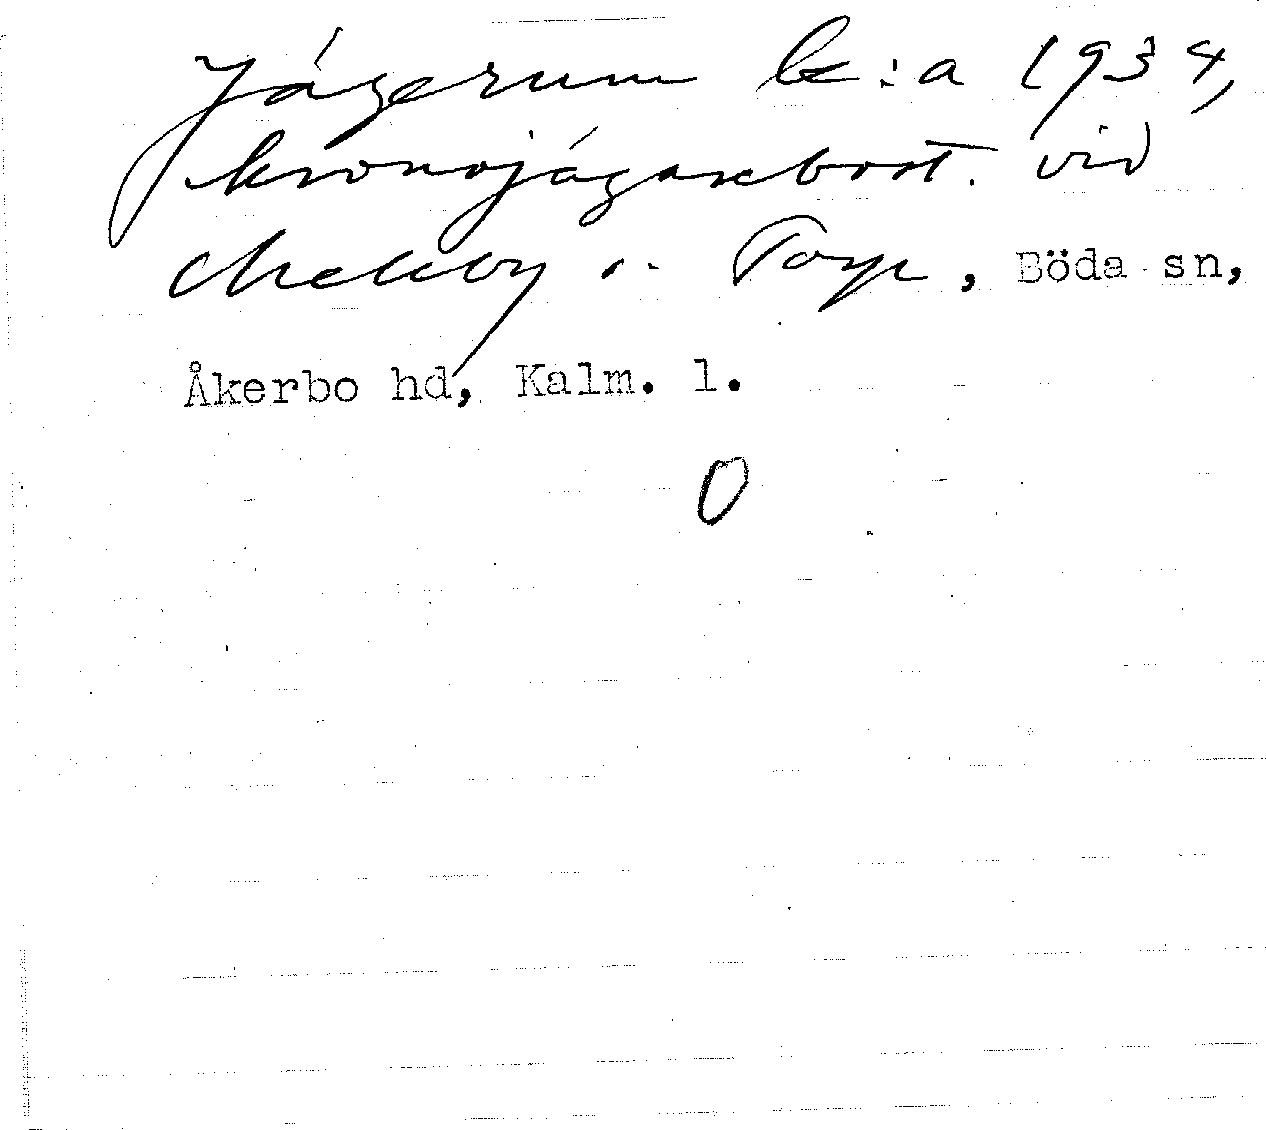 Jägerum k:a 1934,
kronojägarebost. vid
Mellby o. Torp, Böda sn,
Åkerbo hd, Kalm. l.
O